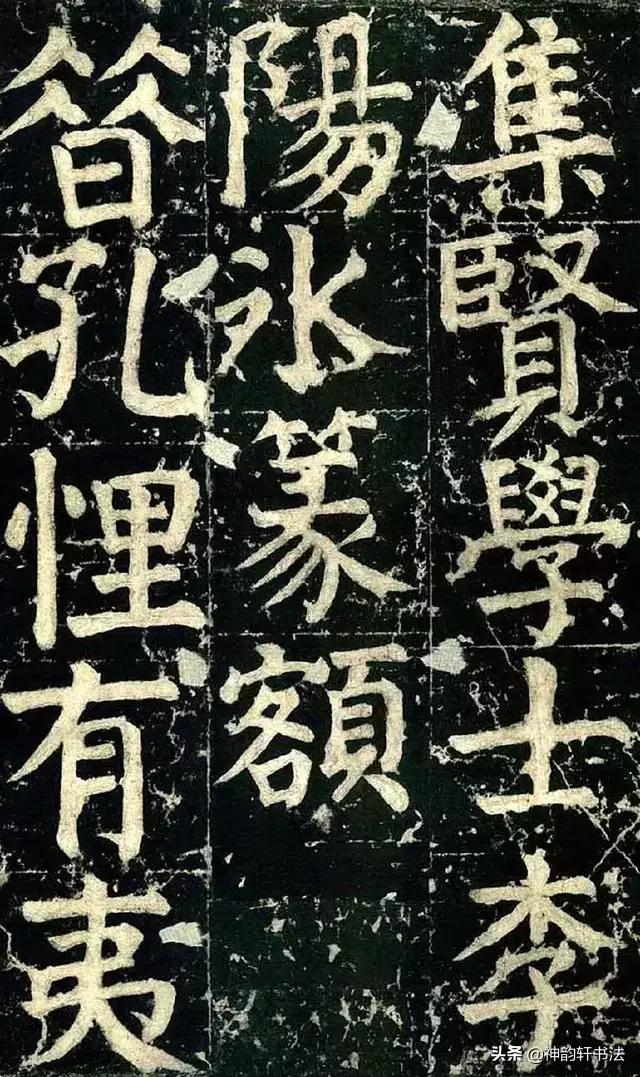 集賢學士李
陽冰篆額
昔孔悝有夷
头条 @神韵轩书法